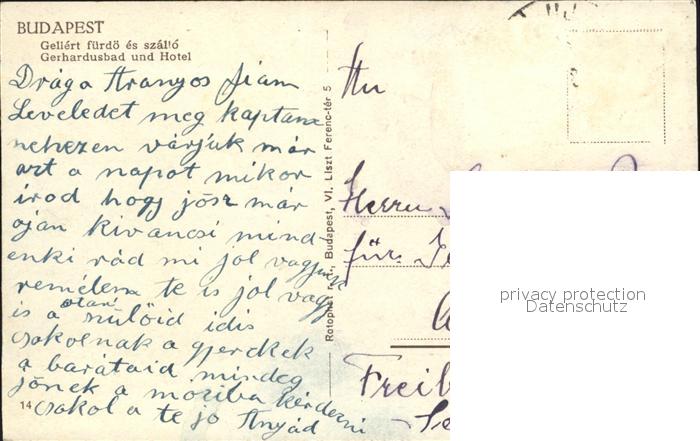 BUDAPEST
Gellért fürdő és szálló
Gerhardusbad und Hotel
Drága Aranyos fiam
Leveledet meg kaptam
nehezen várjuk már
azt a napot mikor
irod hogy jösz már
oján kivancsi mind-
enki rád mi jol vagyunk
remélem te is jol vagy
is a szülöid
csokolnak a gyerekek
a barátaid mindeg
jönek a moziba kérdezni
14 csokol a te jo Anyád
Rotophot r.t., Budapest, VI. Liszt Ferenc-tér 5
Herrn
für
Freib
privacy protection
Datenschutz